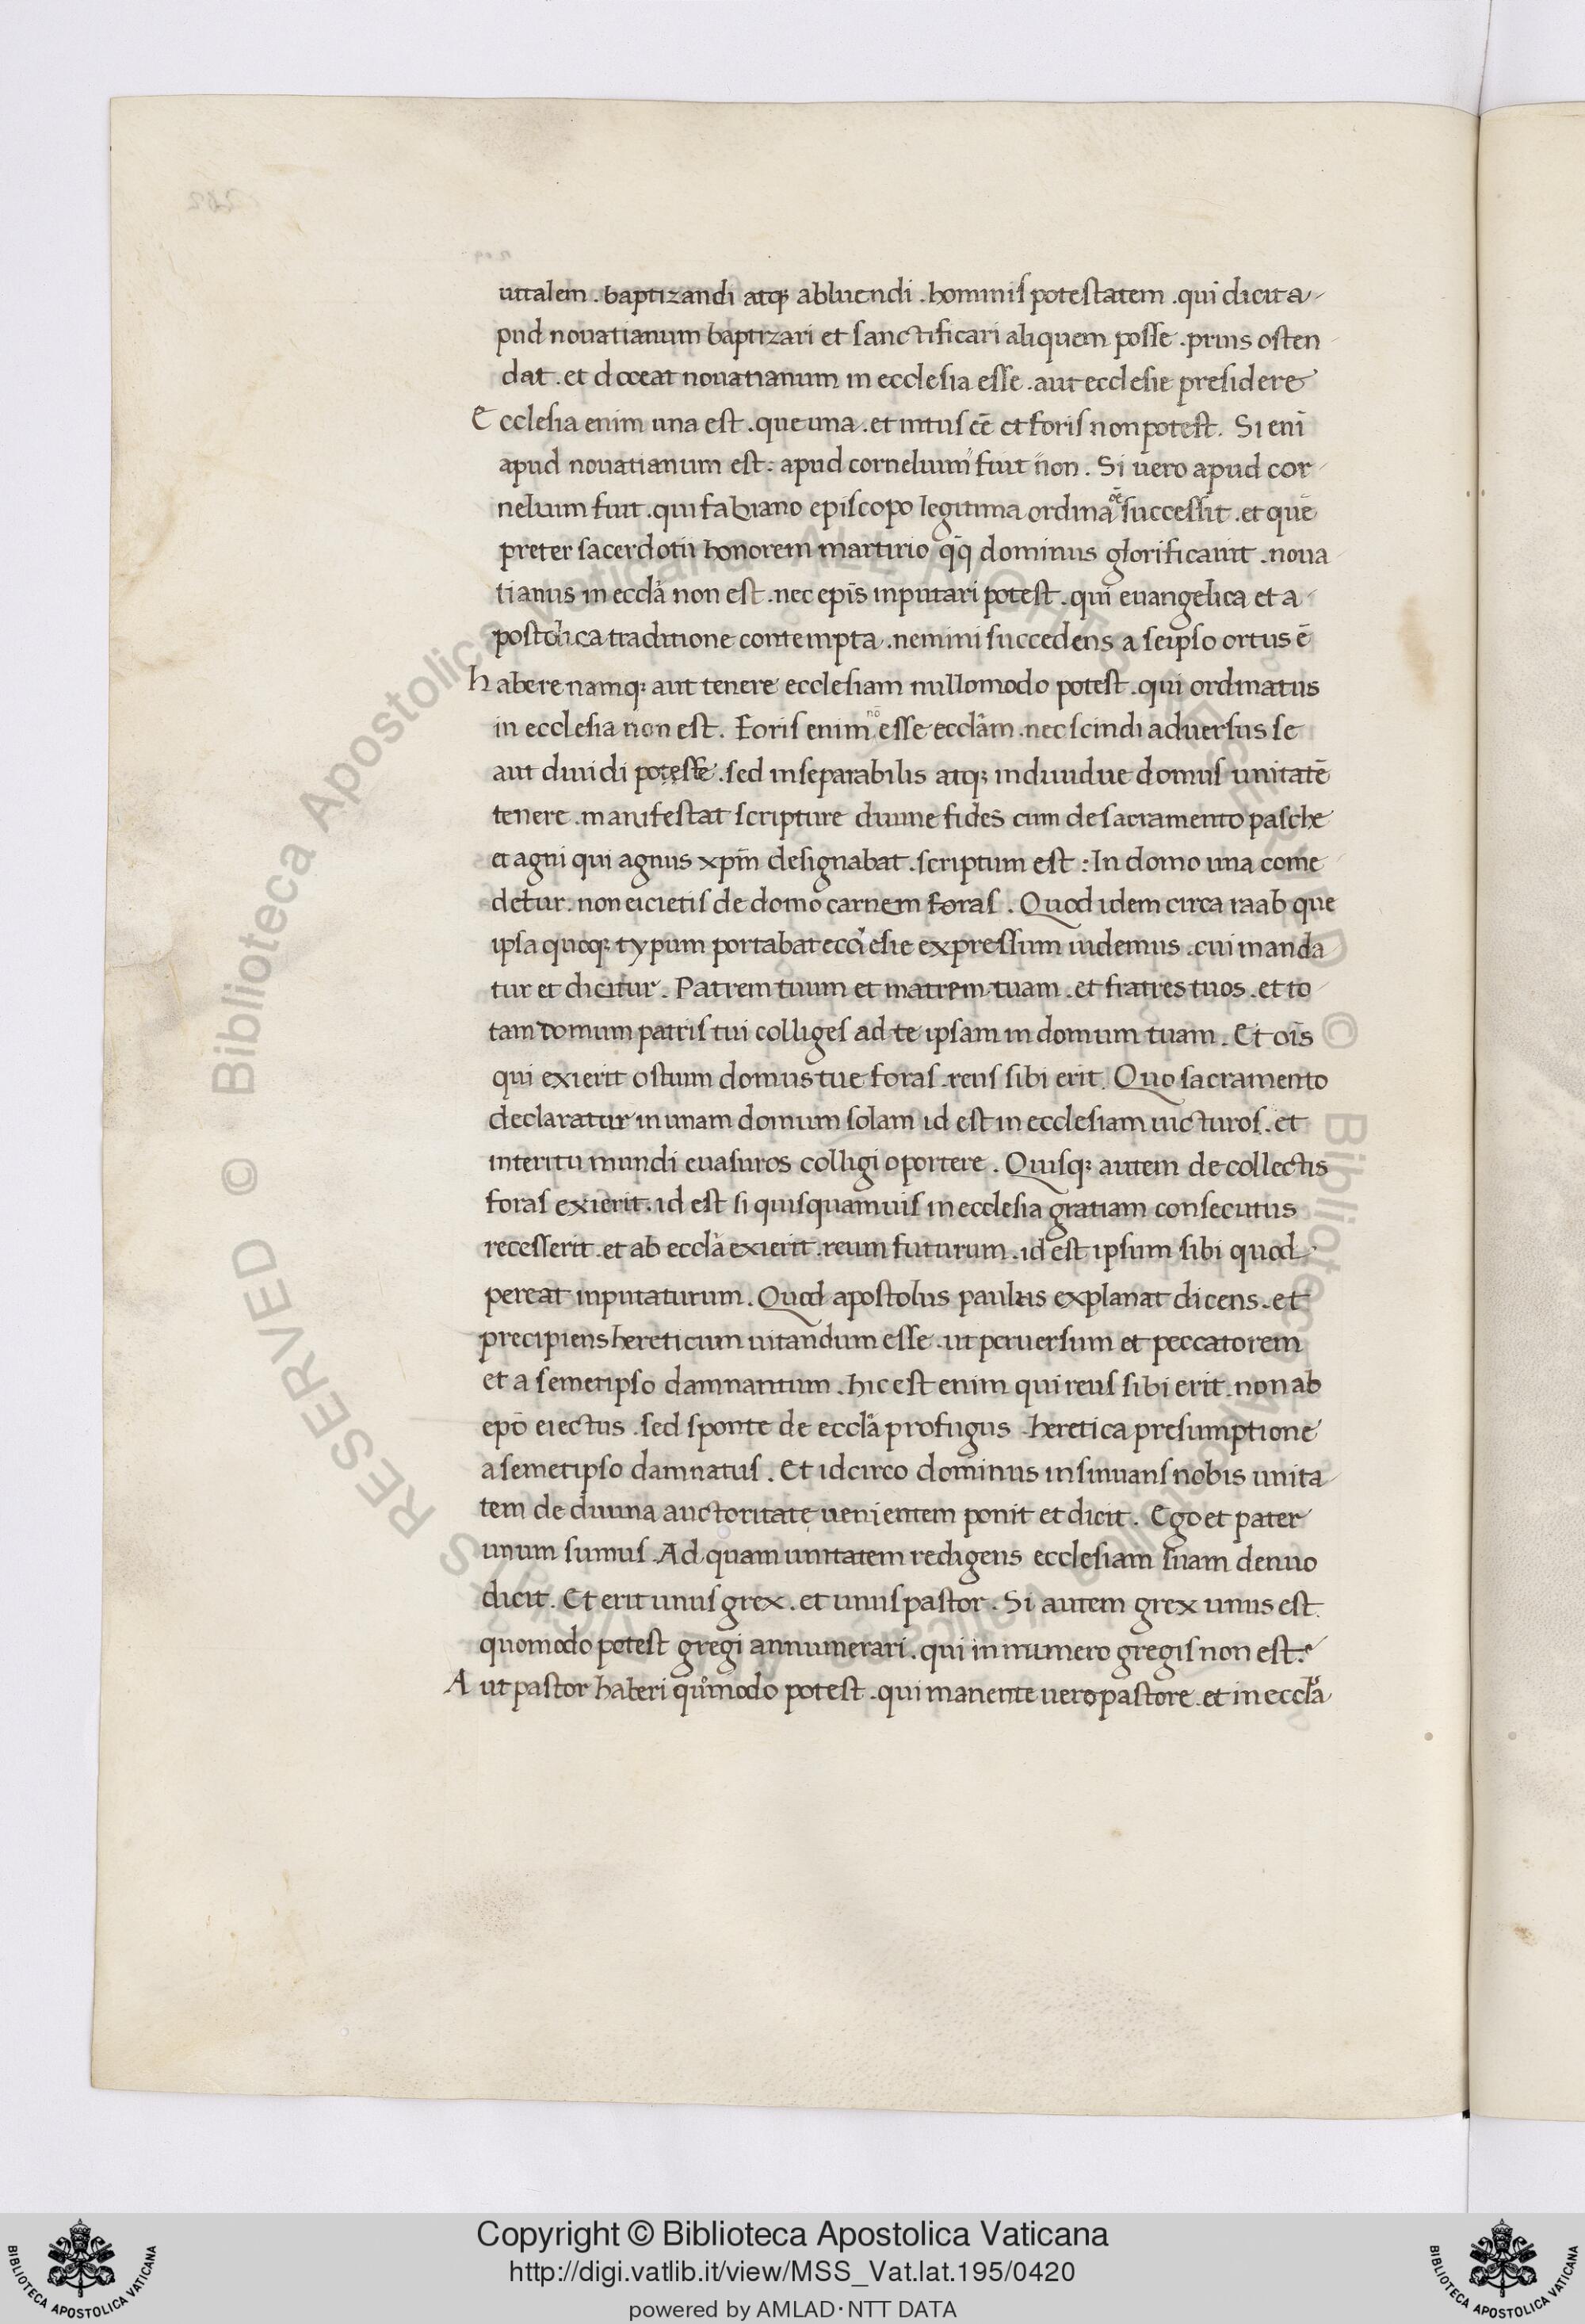 uitalem . baptizandi atq; abluendi . hominis potestatem . qui dicit a-
pud nouatianum baptizari et sanctificari aliquem posse . prius osten
dat . et doceat nouatianum in ecclesia esse . aut ecclesie presidere
Ecclesia enim una est . que una . et intus eē et foris non potest. Si eni̅
apud nouatianum est : apud cornelium fuit non . Si uero apud cor-
nelium fuit . qui fabiano episcopo legitima ordinaōe successit . et quē
preter sacerdotii honorem martirio q̄q dominus glorificauit . noua
tianus in eccl̄a non est . nec ep̄s inputari potest . qui euangelica et a-
postolica traditione contempta . nemini succedens a seipso ortus ē
habere namq; aut tenere ecclesiam nullomodo potest . qui ordinatus
in ecclesia non est . Foris enim nō esse eccl̄am . nec scindi aduersus se
aut diuidi posse . sed inseparabilis atq; indiuidue domus unitatē
tenere . manifestat scripture diuine fides cum de sacramento pasche
et agni qui agnus xp̄m designabat . scriptum est : In domo una come
detur . non eicietis de domo carnem foras . Quod idem circa raab que
ipsa quoq; typum portabat ecclesie expressum uidemus . cui manda
tur et dicitur . Patrem tuum et matrem tuam . et fratres tuos . et to
tam domum patris tui colliges ad te ipsam in domum tuam . Et oi̅s
qui exierit ostium domus tue foras . reus sibi erit . Quo sacramento
declaratur in unam domum solam id est in ecclesiam uicturos . et
interitu mundi euasuros colligi oportere . Quisq; autem de collectis
foras exierit . id est si quisquamuis in ecclesia gratiam consecutus
recesserit . et ab eccl̄a exierit . reum futurum . id est ipsum sibi quod
pereat inputaturum . Quod apostolus paulus explanat dicens . et
precipiens hereticum uitandum esse . ut peruersum et peccatorem
et a semetipso damnatum . hic est enim qui reus sibi erit . non ab
ep̄o eiectus . sed sponte de eccl̄a profugus . heretica presumptione
a semetipso damnatus . Et idcirco dominus insinuans nobis unita-
tem de diuina auctoritate uenientem ponit et dicit . Ego et pater
unum sumus . Ad quam unitatem redigens ecclesiam suam denuo
dicit . Et erit unus grex . et unus pastor . Si autem grex unus est .
quomodo potest gregi annumerari . qui in numero gregis non est ?
Aut pastor haberi quōmodo potest . qui manente uero pastore . et in eccl̄a
© Biblioteca Apostolica Vaticana ALL RIGHTS RESERVED © Biblioteca Apostolica Vaticana ALL RIGHTS RESERVED
BIBLIOTECA APOSTOLICA VATICANA
Copyright © Biblioteca Apostolica Vaticana
http://digi.vatlib.it/view/MSS_Vat.lat.195/0420
powered by AMLAD·NTT DATA
BIBLIOTECA APOSTOLICA VATICANA